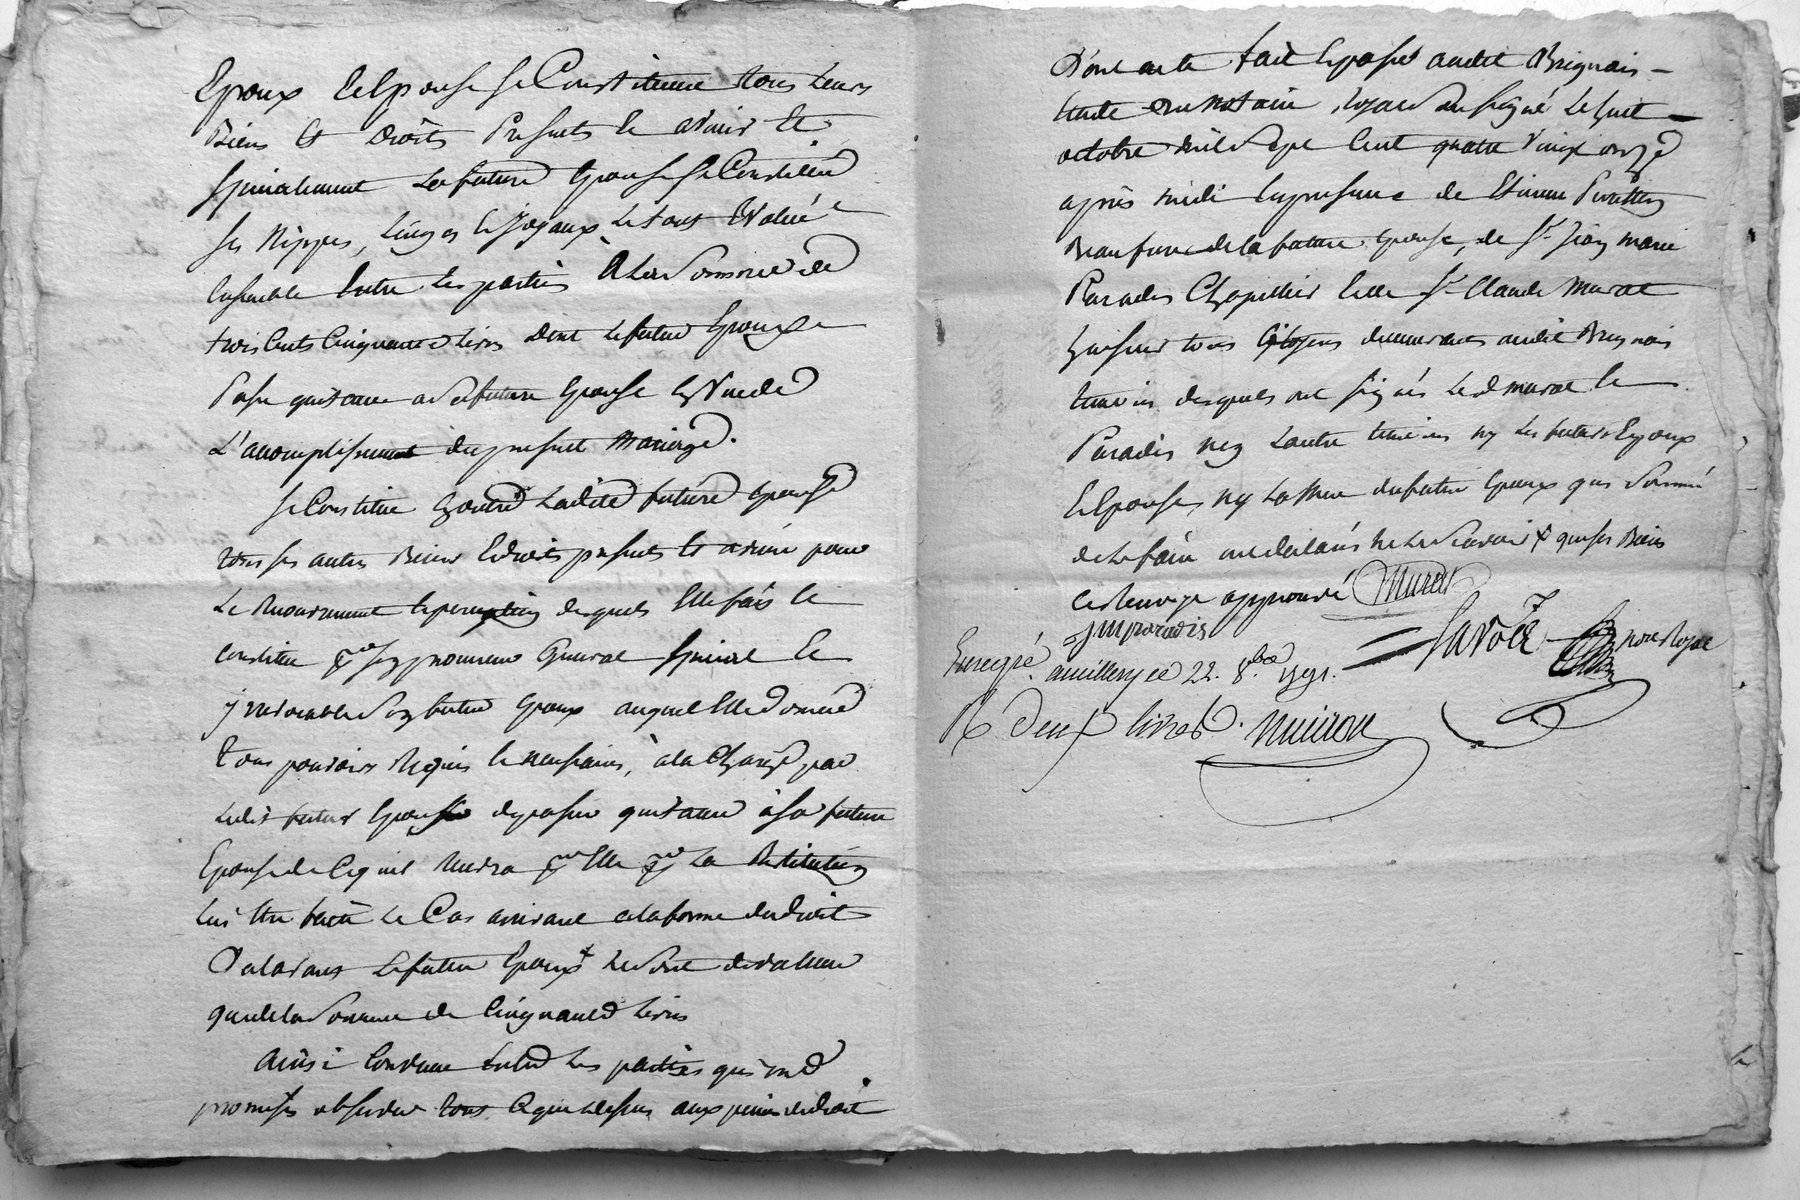 Epoux et Epouse se Constituent tous leurs
Biens et droits presents et avenir et
specialement la future Epouse se Constitue
ses Nippes, linges et Joyaux le tout Evalué
Ensemble Entre les parties à la Somme de
trois Cents Cinquante livres dont le futur Epoux
passe quittance a sa future Epouse En Vue de
L'accomplissement du present Mariage.
se Constitue En outre Ladite future Epouse
tous ses autres Biens et droits presents et avenir pour
le Recouvrement et perception desquels Elle fait et
constitue pr son procureur General special et
jrrevocable son futur Epoux auquel Elle donne
tous pouvoirs Requis et necessaires, à la Charge par
ledit futur Epoux de passer quittance à sa future
Epouse de Ce qu'il Recevra pr Elle pr la Restitution
lui En Etre faite le Cas arrivant a la forme du droit
Declarant le futur Epoux + ne sont de valeur
que de la Somme de Cinquante livres
Ainsi Convenu Entre les parties qui ont
promises observer tout Ce que dessus aux peines de droit
Dont acte fait et passé audit Brignais
Etude du Notaire Royal soussigné le huit
octobre mil sept Cent quatre Vingt onze
après midi En presence de Etienne
Beau frere de la future Epouse, de Sr Jean Marie
Paradis Chapellier et de Sr Claude Murat
huissier tous Citoyens demeurants audit Brignais
temoins desquels ont signés led murat et
Paradis non Lautre temoins ny les futurs Epoux
et Epouse, ny La Mere du futur Epoux qui sommé
de le faire ont declarés ne le scavoir + que ses Biens
ce Renvoye approuvé Murat
jmparadis
Savoie nore Royal
Enregré. amillery ce 22. 8bre 1791.
R deux livres.